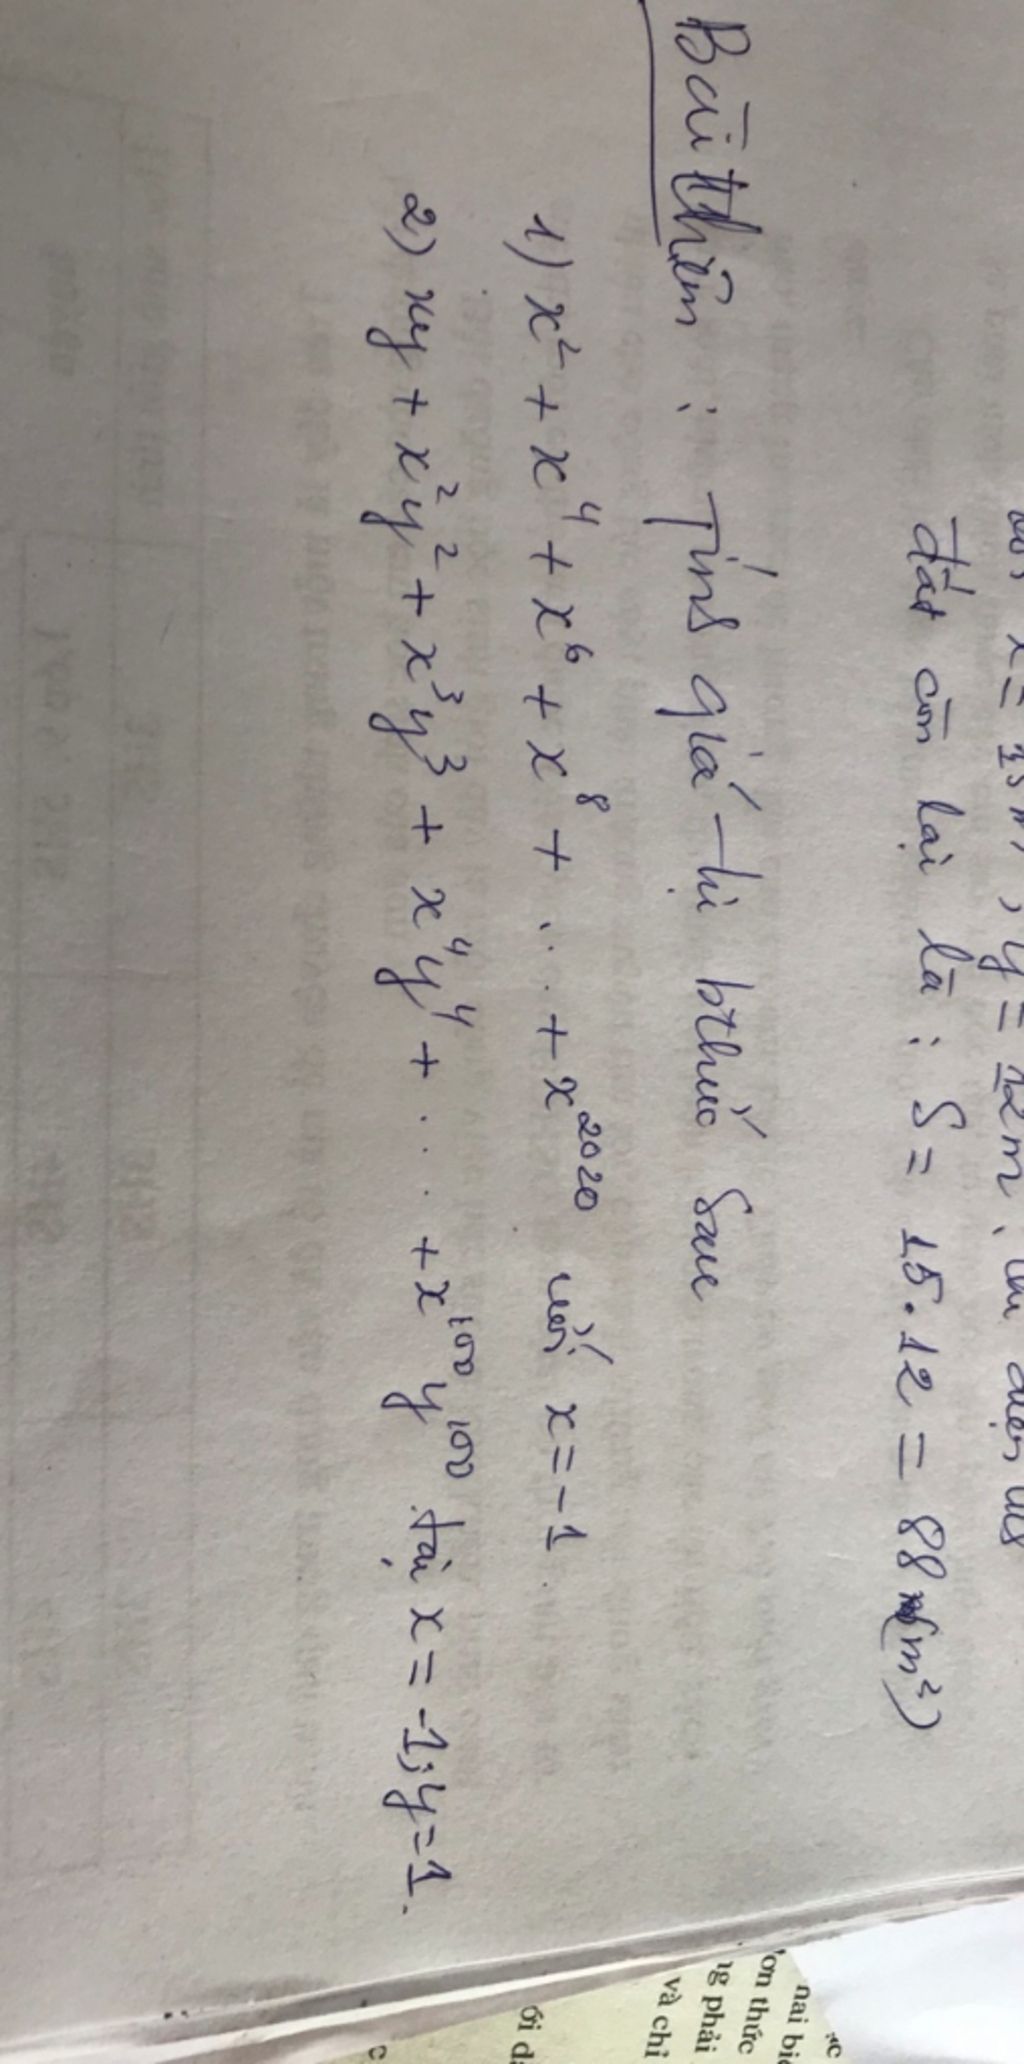 x = 15m, y = 12m,
đất còn lại là : S = 15.12 = 88 (m²)
Bài thêm : Tính giá trị bthức sau
1) x² + x⁴ + x⁶ + x⁸ + ... + x²⁰²⁰ với x = -1.
2) xy + x²y² + x³y³ + x⁴y⁴ + ... + x¹⁰⁰y¹⁰⁰ tại x = -1; y = 1.
ơn thức
phải
và chỉ